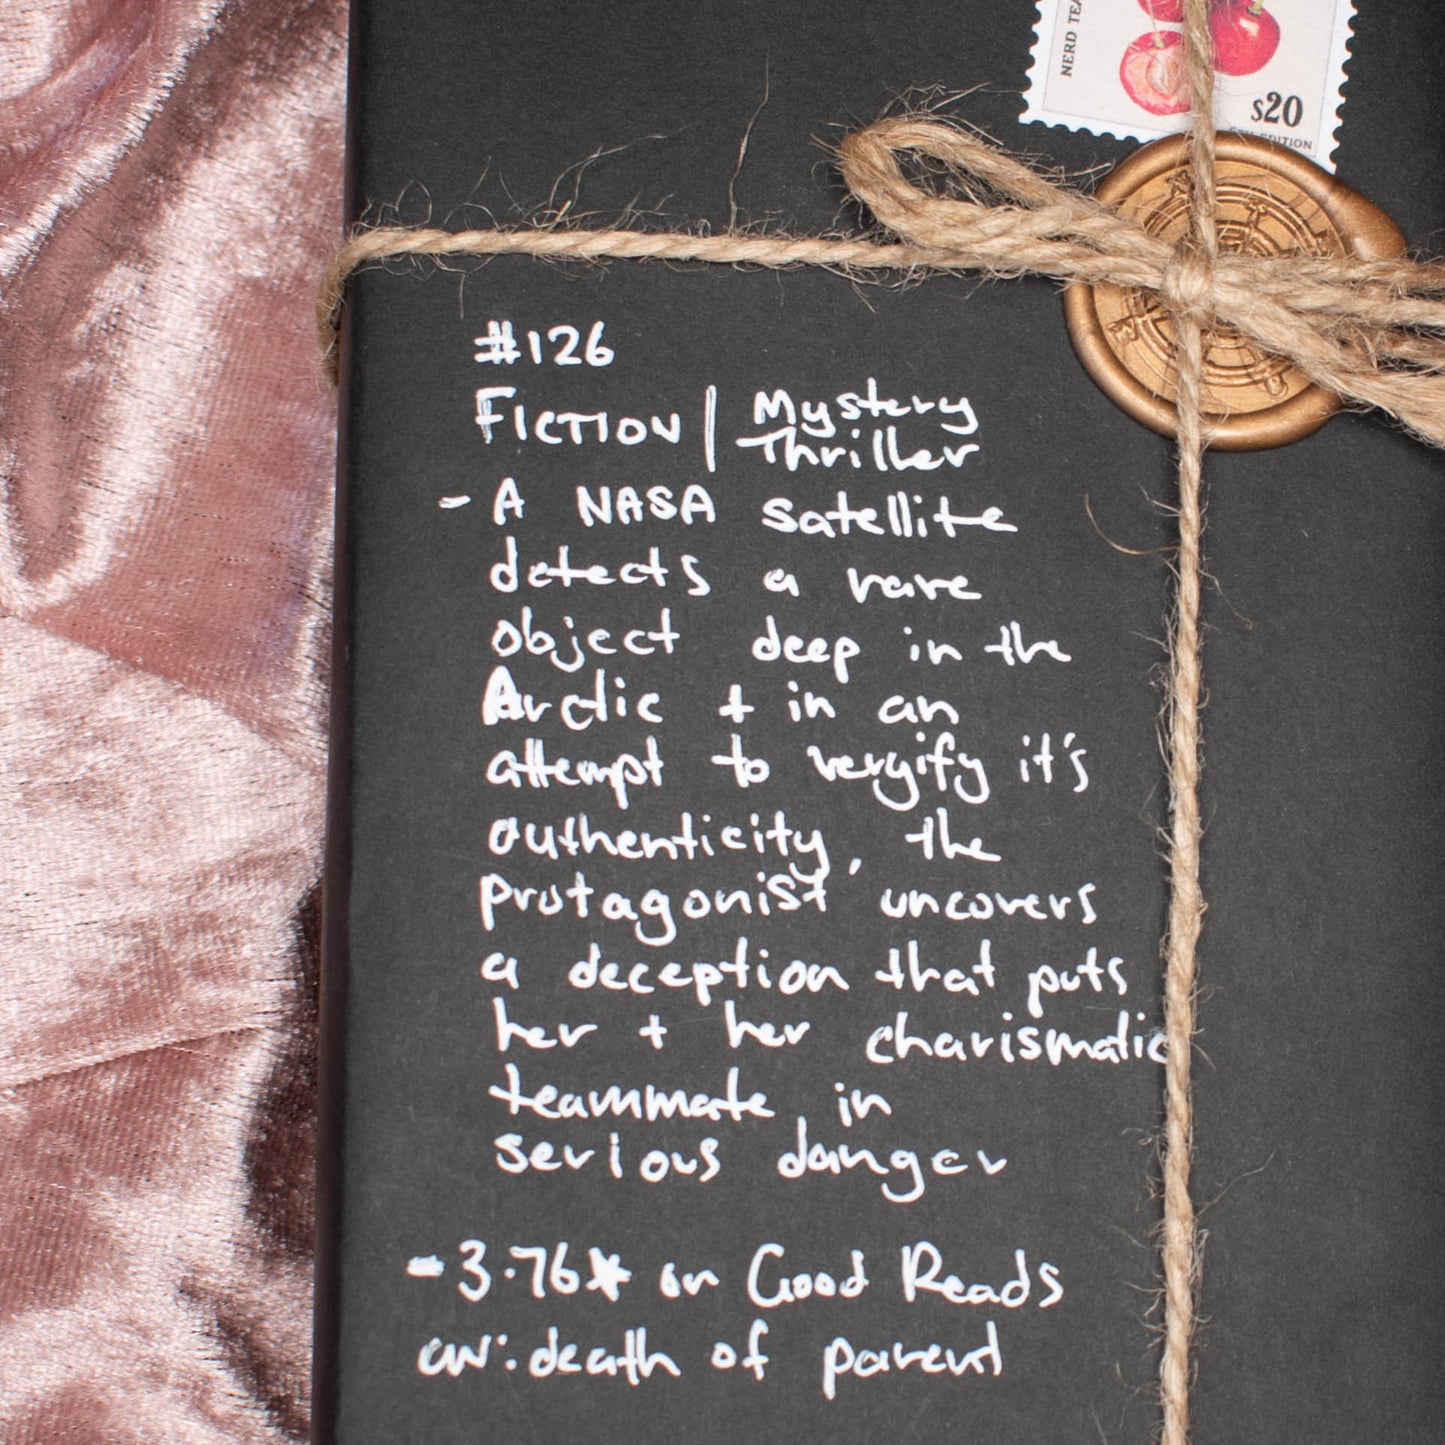 NERD TEA
$20
5TH EDITION
#126
FICTION | Mystery Thriller
- A NASA satellite
detects a rare
object deep in the
Arctic + in an
attempt to vergify it's
authenticity, the
protagonist uncovers
a deception that puts
her + her charismatic
teammate in
serious danger
- 3.76★ on Good Reads
cw: death of parent